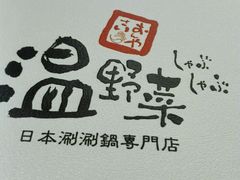 温野菜
しゃぶしゃぶ
日本涮涮鍋専門店